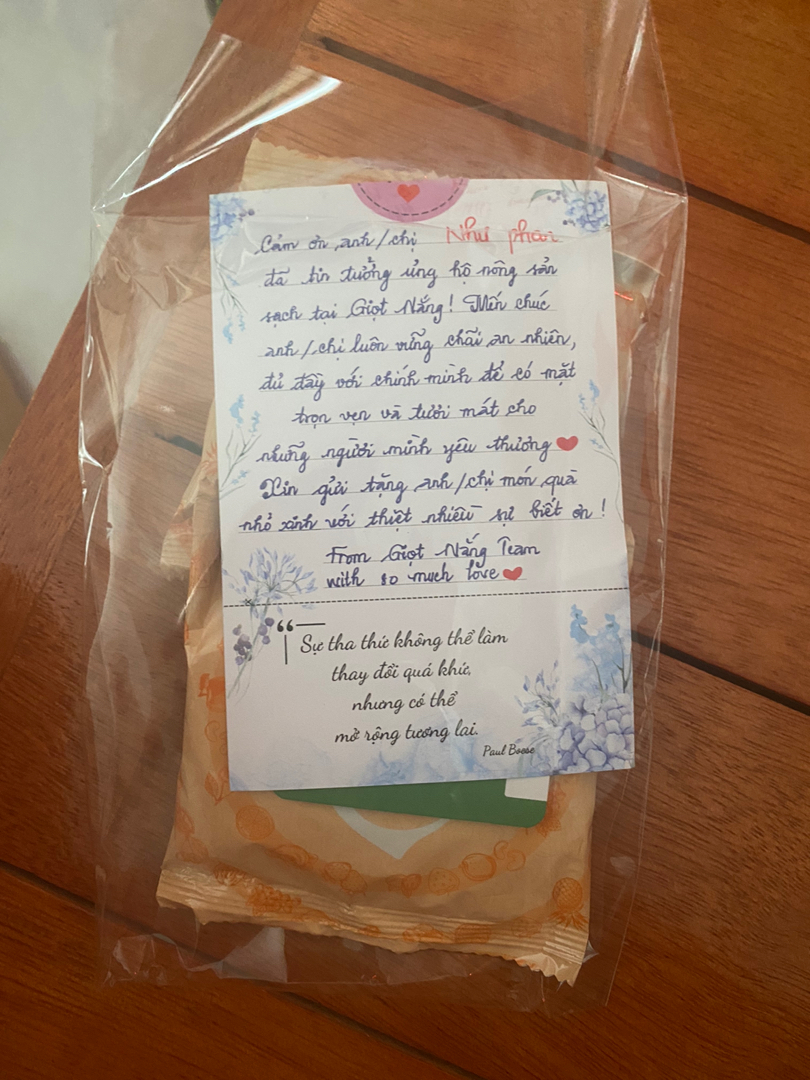 Cảm ơn anh/chị Như phan
đã tin tưởng ủng hộ nông sản
sạch tại Giọt Nắng! Mến chúc
anh/chị luôn vững chãi an nhiên,
đủ đầy với chính mình để có mặt
trọn vẹn và tươi mát cho
những người mình yêu thương
Xin gửi tặng anh/chị món quà
nhỏ xinh với thiệt nhiều sự biết ơn!
From Giọt Nắng Team
with so much love
“Sự tha thứ không thể làm
thay đổi quá khứ,
nhưng có thể
mở rộng tương lai.
Paul Boese